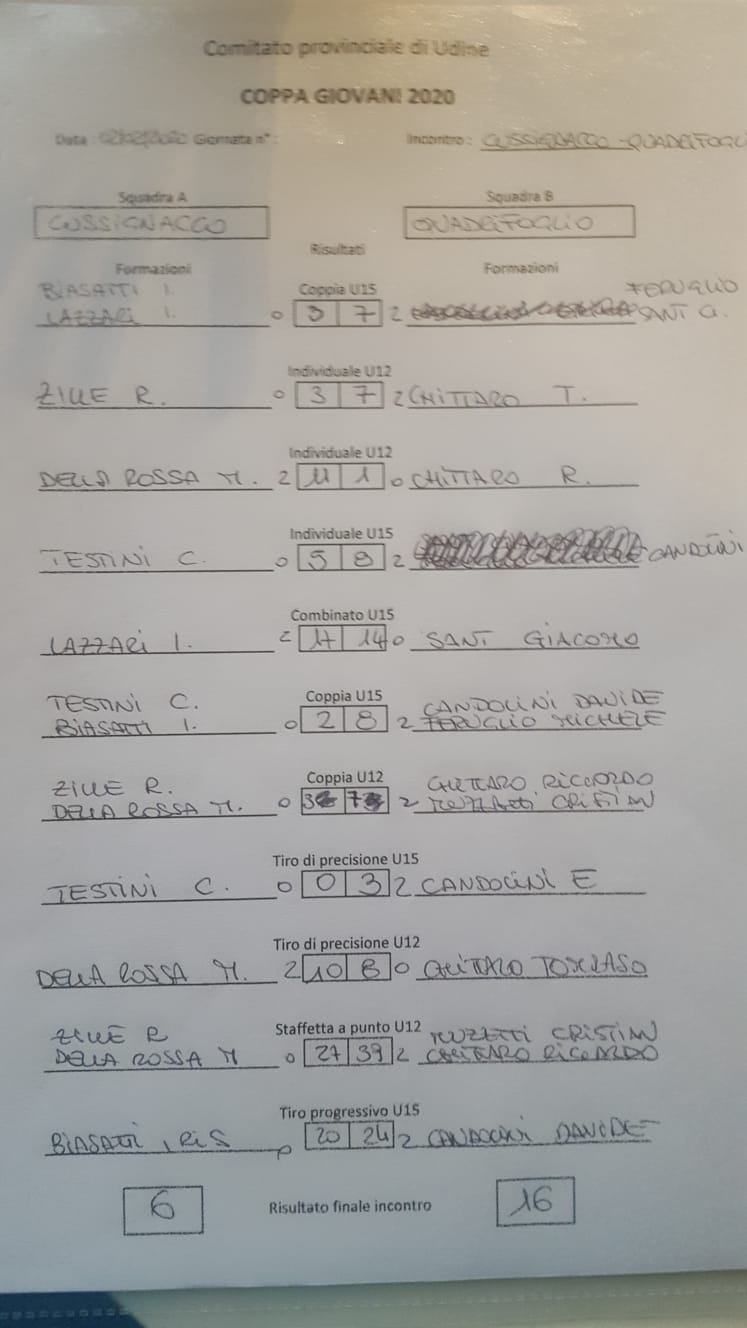 Comitato provinciale di Udine
COPPA GIOVANI 2020
Data : Giornata n° : Incontro : CUSSIGNACCO - QUADRIFOGLI
Squadra A Squadra B
CUSSIGNACCO QUADRIFOGLIO
Risultati
Formazioni Formazioni
BIASATTI I. Coppia U15 FERUGLIO
LAZZARI I. 0 3 7 2 SANT G.
Individuale U12
ZILLE R. 0 3 7 2 CHITTARO T.
Individuale U12
DELLA ROSSA M. 2 11 1 0 CHITTARO R.
Individuale U15
TESTINI C. 0 5 8 2 CANDOLINI
Combinato U15
LAZZARI I. 2 17 14 0 SANT GIACOMO
TESTINI C. Coppia U15 CANDOLINI DAVIDE
BIASATTI I. 0 2 8 2 FERUGLIO MICHELE
ZILLE R. Coppia U12 CHITTARO RICCARDO
DELLA ROSSA M. 0 3 7 2 CRISTIAN
Tiro di precisione U15
TESTINI C. 0 0 3 2 CANDOLINI E
Tiro di precisione U12
DELLA ROSSA M. 2 10 8 0 CHITTARO TOMMASO
ZILLE R Staffetta a punto U12 CRISTIAN
DELLA ROSSA M 0 27 39 2 CHITTARO RICCARDO
Tiro progressivo U15
BIASATTI IRIS 0 20 24 2 CANDOLINI DAVIDE
6 Risultato finale incontro 16